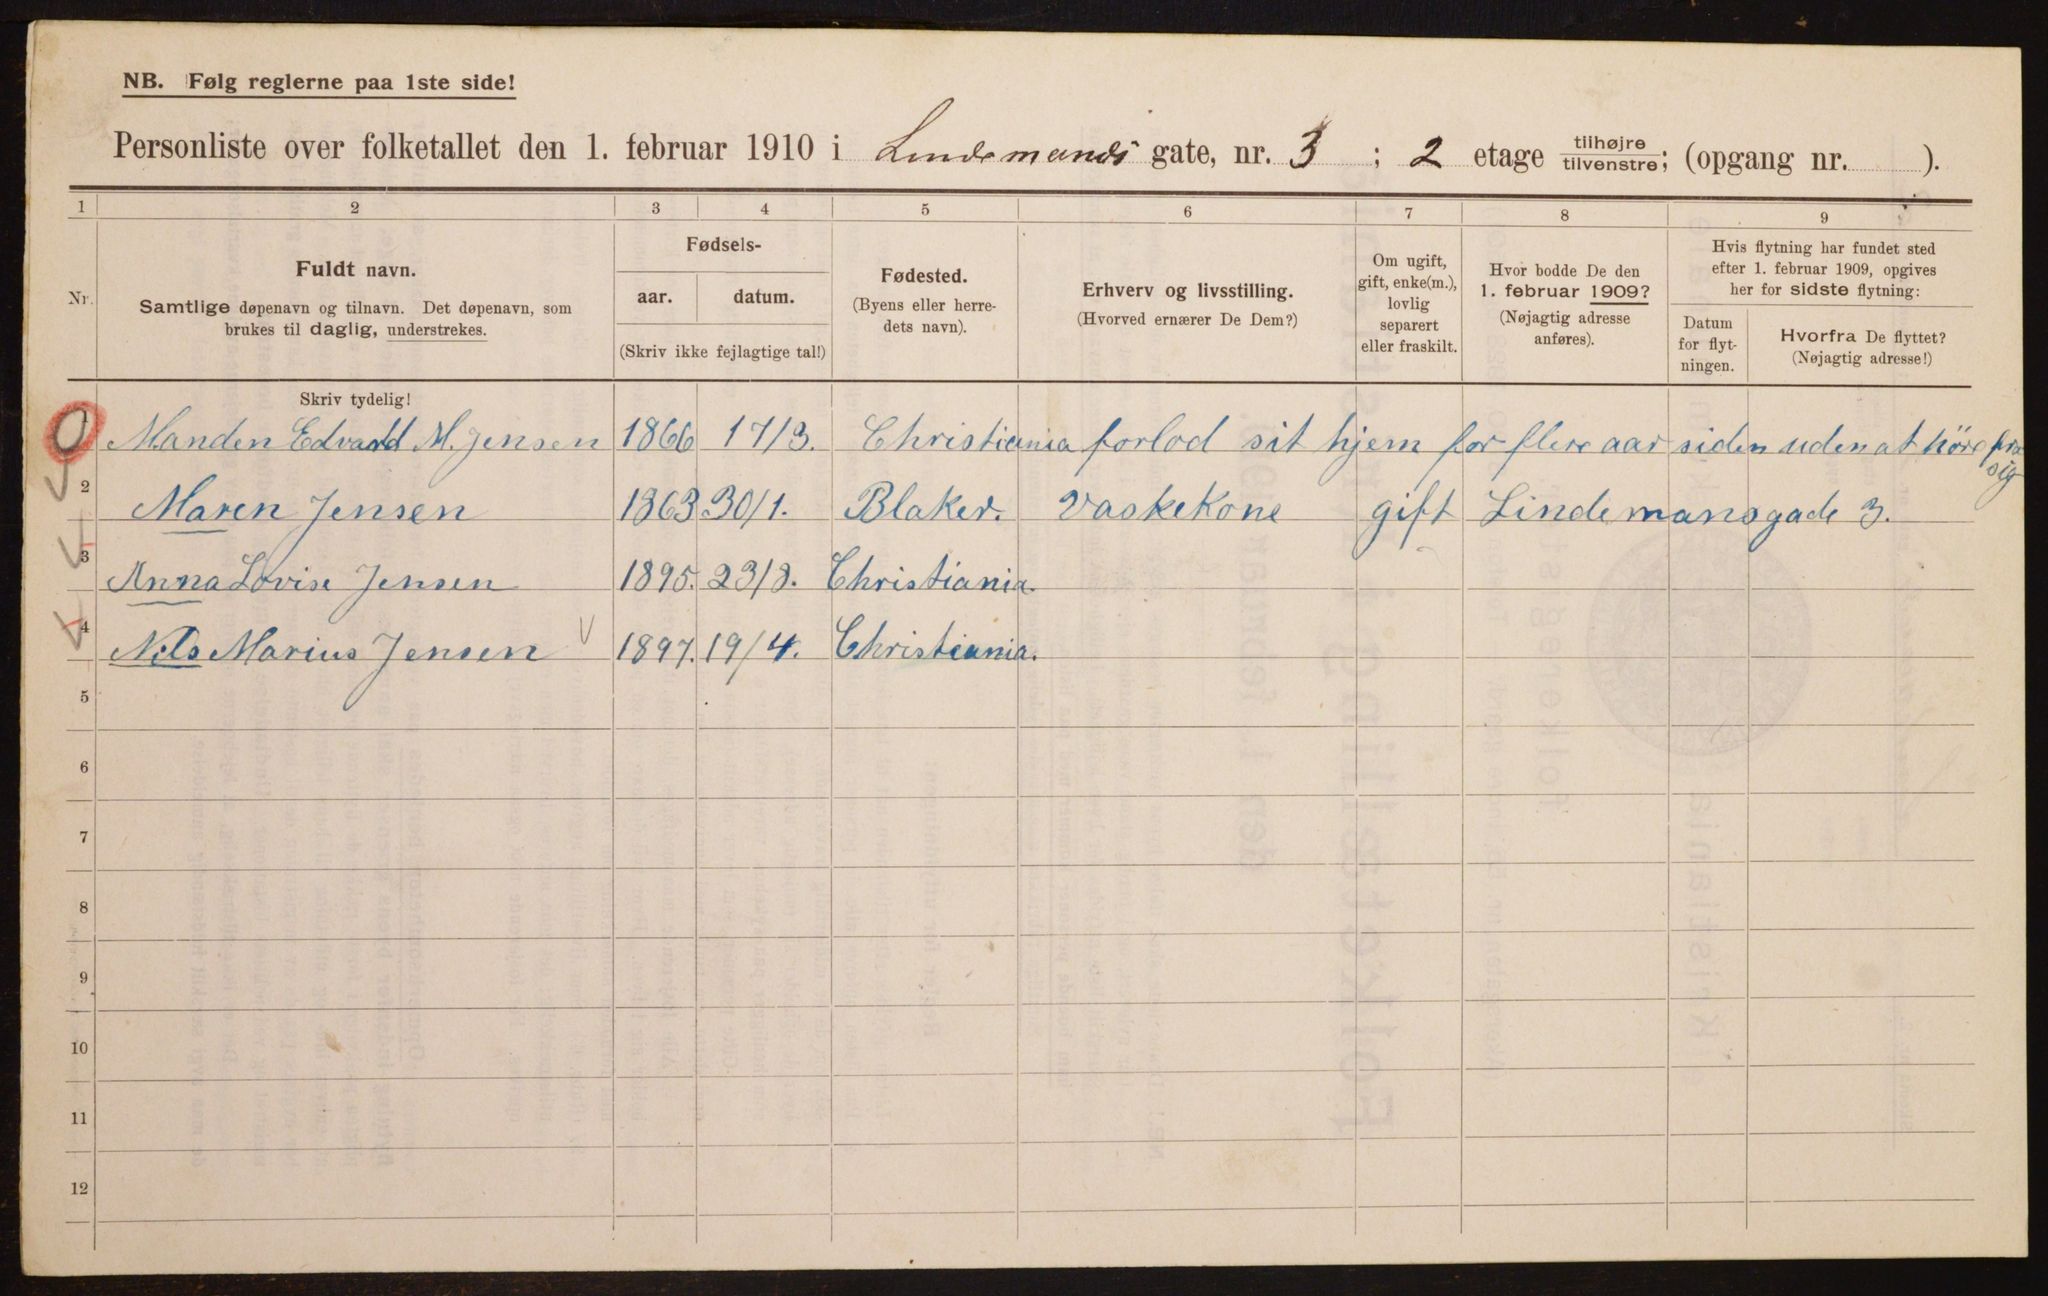 NB. Følg reglerne paa 1ste side!
Personliste over folketallet den 1. februar 1910 i Lindemands gate, nr. 3 ; 2 etage tilhøjre tilvenstre; (opgang nr. ).
1 2 3 4 5 6 7 8 9
Nr.
Fuldt navn.
Samtlige døpenavn og tilnavn. Det døpenavn, som
brukes til daglig, understrekes.
Fødsels-
aar. datum.
(Skriv ikke fejlagtige tal!)
Fødested.
(Byens eller herre-
dets navn).
Erhverv og livsstilling.
(Hvorved ernærer De Dem?)
Om ugift,
gift, enke(m.),
lovlig
separert
eller fraskilt.
Hvor bodde De den
1. februar 1909?
(Nøjagtig adresse
anføres).
Hvis flytning har fundet sted
efter 1. februar 1909, opgives
her for sidste flytning:
Datum
for flyt-
ningen.
Hvorfra De flyttet?
(Nøjagtig adresse!)
Skriv tydelig!
1 Manden Edvard M. Jensen 1866 17/3. Christiania forlod sit hjem for flere aar siden uden at höre fra
sig
2 Maren Jensen 1863 30/1. Blaker. Vaskekone gift Lindemansgade 3.
3 Anna Lovise Jensen 1895. 23/8. Christiania.
4 Nils Marius Jensen 1897. 19/4. Christiania.
5
6
7
8
9
10
11
12